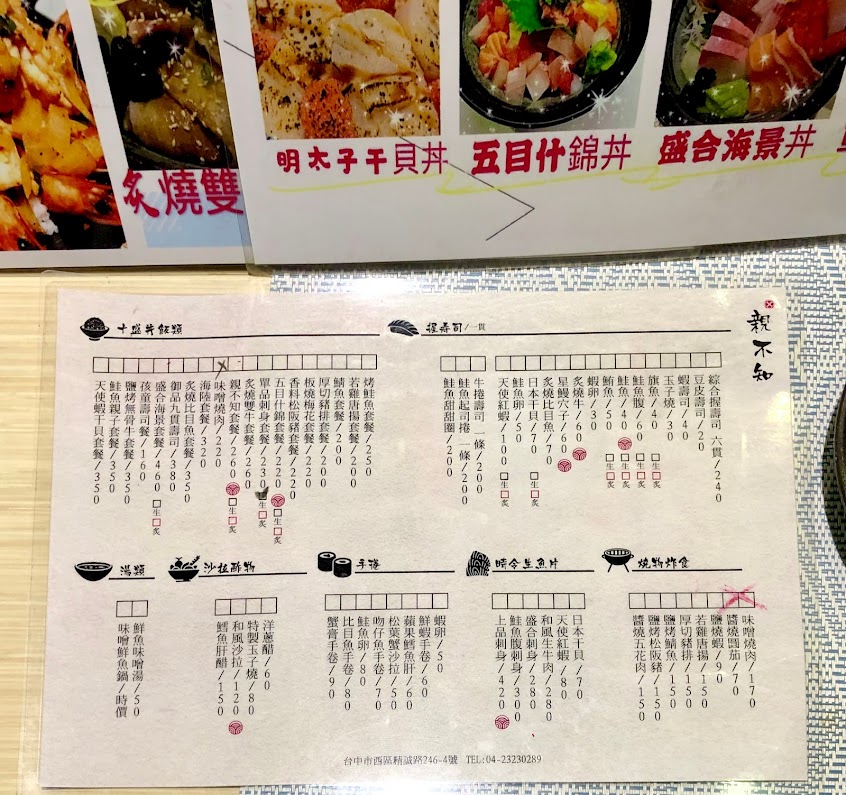 炙燒雙
明太子干貝丼
五目什錦丼
盛合海景丼
親不知
握壽司/一貫
綜合握壽司 六貫/240
豆皮壽司/20
蝦壽司/40
玉子燒/30
旗魚/40 生 炙
鮭魚腹/60 生 炙
鮭魚/40 生 炙
鮪魚/50 生 炙
蝦卵/30
炙燒牛/60
星鰻穴子/60
炙燒比目魚/70
日本干貝/70 生 炙
鮭魚卵/50
天使紅蝦/100 生 炙
牛捲壽司 一條/200
鮭魚起司捲 一條/200
鮭魚甜甜圈/200
十盛丼飯類
烤鮭魚套餐/250
若雞唐揚套餐/200
鯖魚套餐/200
厚切豬排套餐/200
板燒梅花套餐/220
香料松阪豬套餐/220
五目什錦套餐/220 生 炙
單品刺身套餐/230 生 炙
炙燒雙牛套餐/260
親不知套餐/260 生 炙
味噌燒肉/220
海陸套餐/320
炙燒比目魚套餐/350
御品九貫壽司/380
盛合海景套餐/460 生 炙
孩童壽司套餐/160
鹽烤無骨牛套餐/350
鮭魚親子套餐/350
天使蝦干貝套餐/350
燒物炸食
味噌燒肉/170
醬燒圓茄/70
鹽燒蝦/90
若雞唐揚/150
厚切豬排/150
鹽烤鯖魚/150
鹽烤松阪豬/150
醬燒五花肉/150
時令生魚片
日本干貝/70
天使紅蝦/80
和風生牛肉/280
盛合刺身/280
鮭魚腹刺身/300
上品刺身/420
手捲
蝦卵/50
鮮蝦手卷/60
蘋果鱈魚肝/60
松葉蟹沙拉/50
吻仔魚手卷/70
鮭魚卵/80
比目魚手卷/80
蟹膏手卷/90
沙拉酢物
洋蔥醋/60
特製玉子燒/80
和風沙拉/120
鱈魚肝醋/150
湯類
鮮魚味噌湯/50
味噌鮮魚鍋/時價
台中市西區精誠路246-4號 TEL:04-23230289